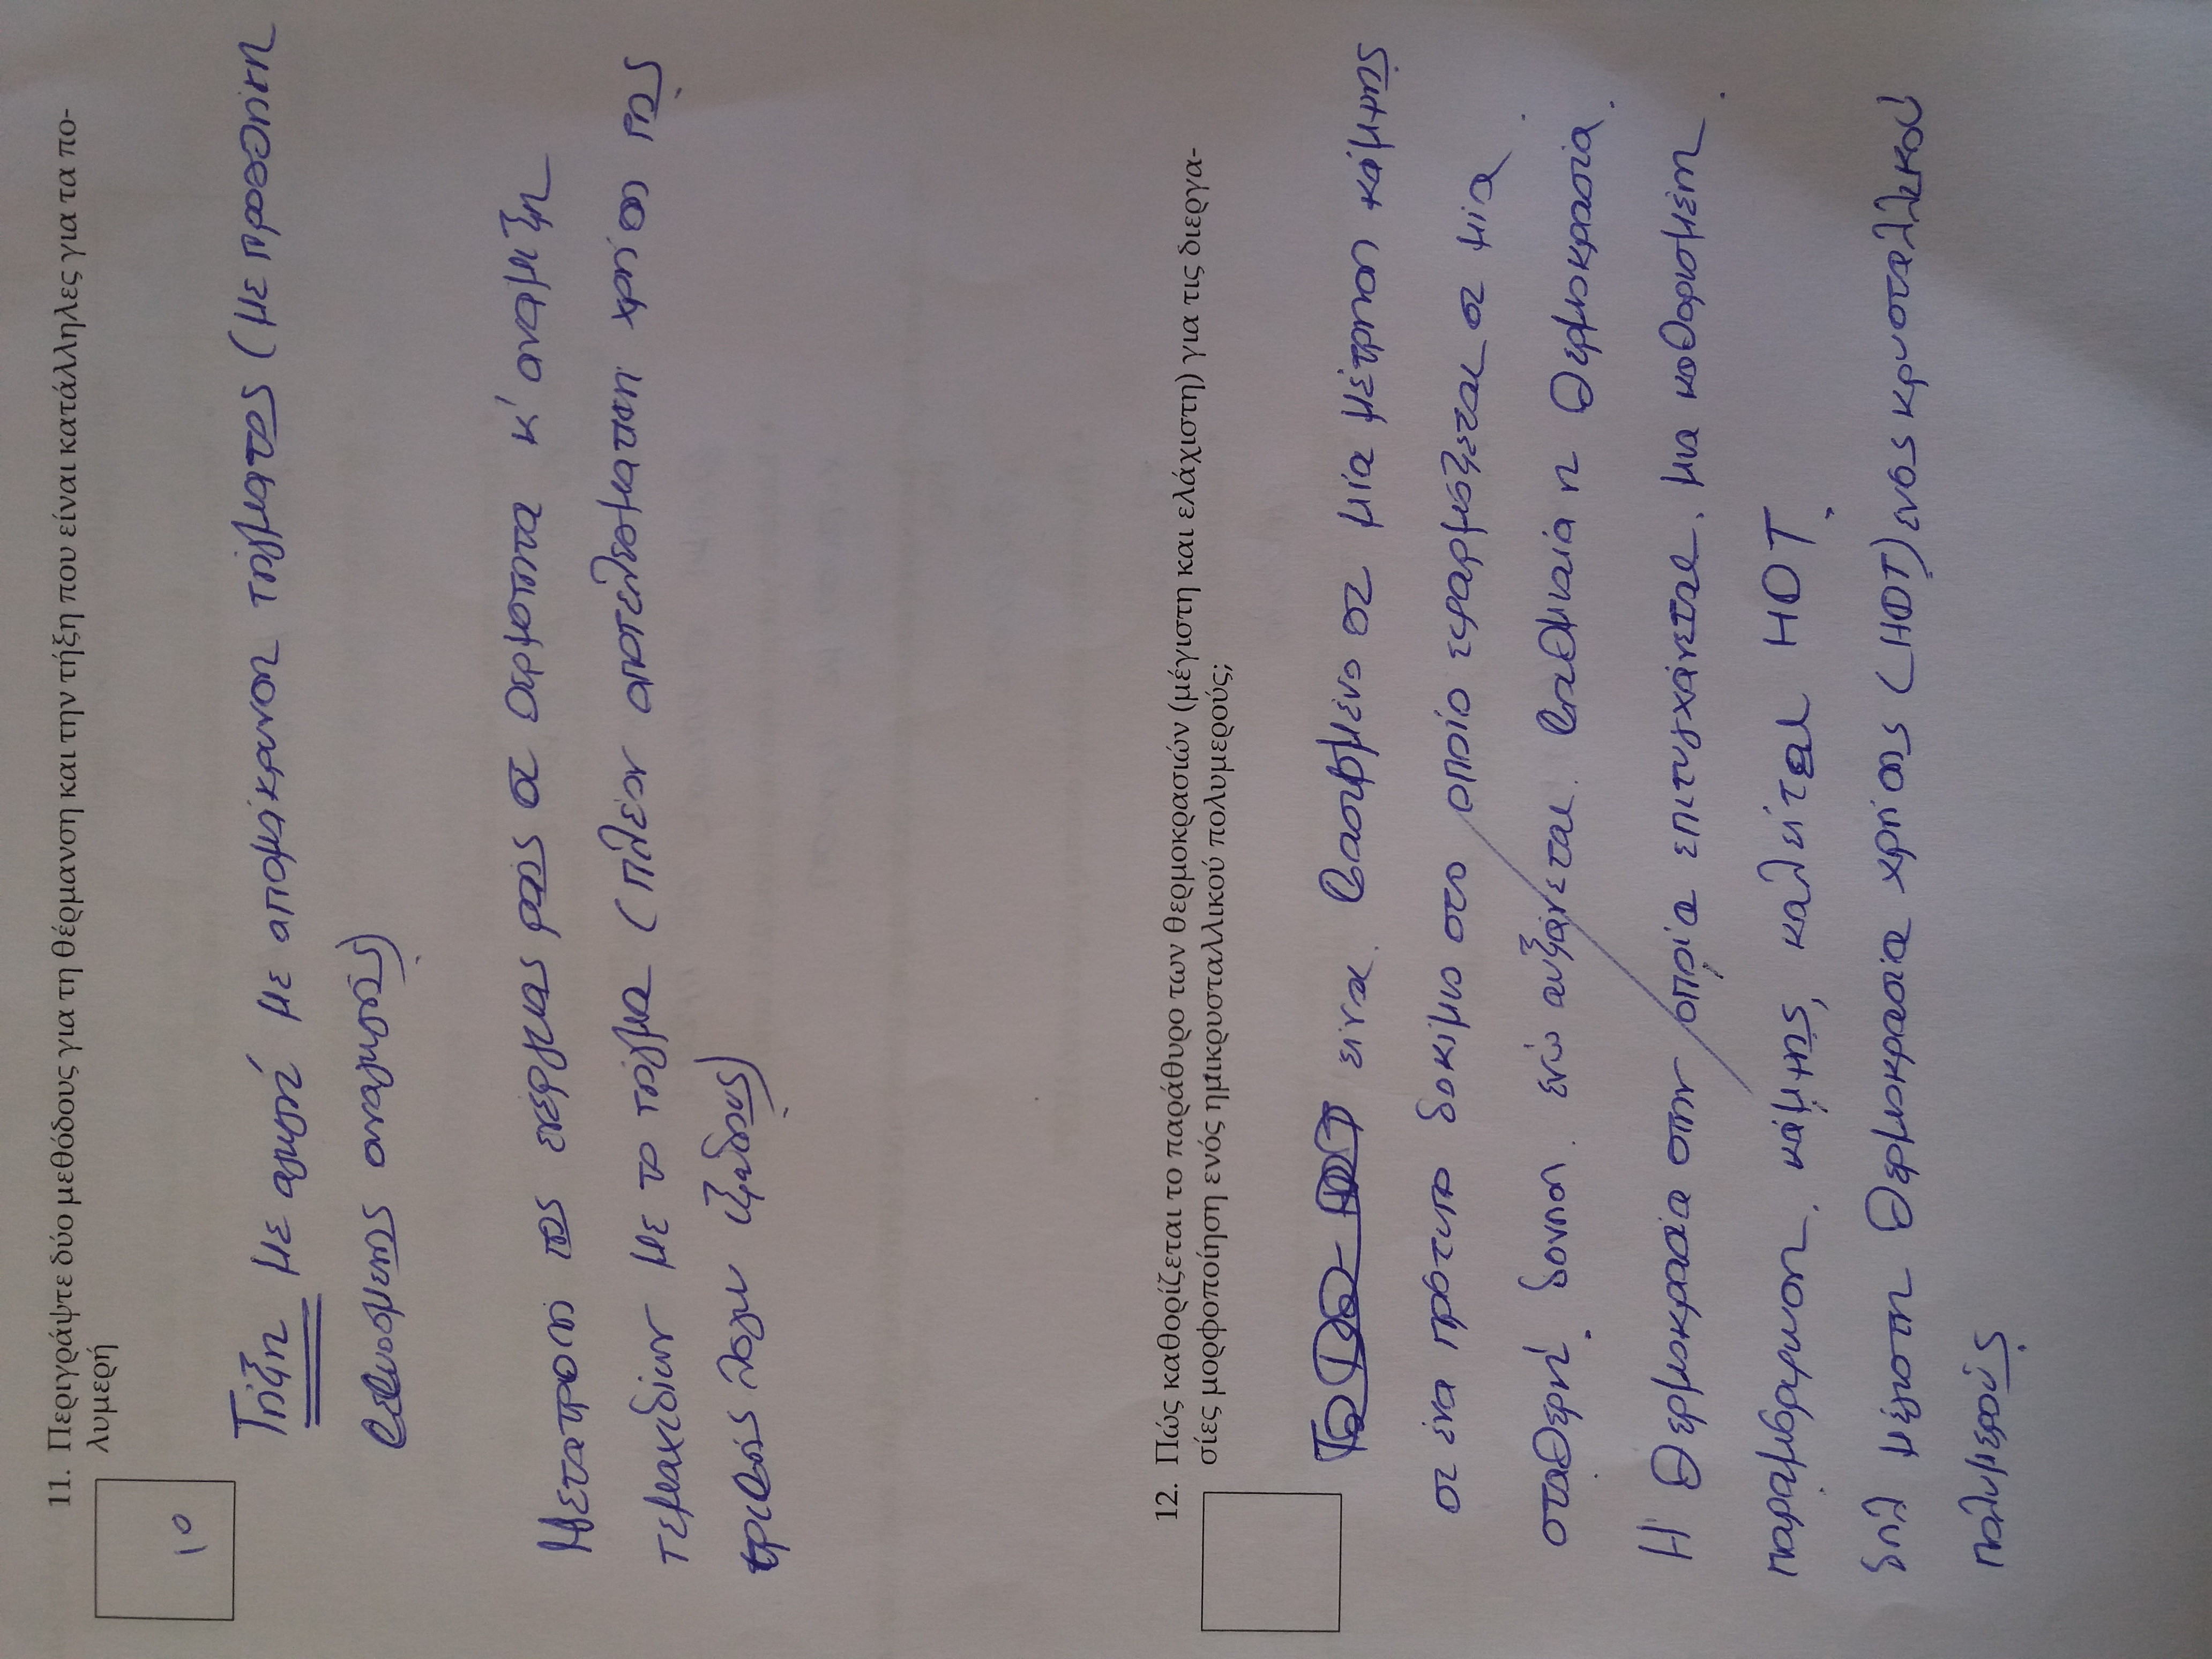 11. Περιγράψτε δύο μεθόδους για τη θέρμανση και την τήξη που είναι κατάλληλες για τα πο-
λυμερή
10
Τήξη με αγωγή με απομάκρυνση τήγματος (με προσθήκη
εξαναγκασμένης
Μετατροπή της ενέργειας ροής σε θερμότητα κ' αναμιξη
τεμαχιδίων με το τήγμα (πλέον αποτελεσματική χρήση της
τριβής λόγω ιξώδους)
12. Πώς καθορίζεται το παράθυρο των θερμοκρασιών (μέγιστη και ελάχιστη) για τις διεργα-
σίες μορφοποίηση ενός ημικρυσταλλικού πολυμερούς;
είναι βασισμένο σε μία μέτρηση κάμψης
σε ένα πρότυπο δοκίμιο στο οποίο εφαρμόζεται σε μία
σταθερή δονηση ενώ αυξάνεται βαθμιαία η θερμοκρασία.
Η θερμοκρασία στην οποία επιτυγχάνεται μια καθορισμένη
παραμόρφωση κάμψης, καλείται HDT,
δηλ μέγιστη θερμοκρασία χρήσης (HDT) ενος κρυσταλλικού
πολυμερούς